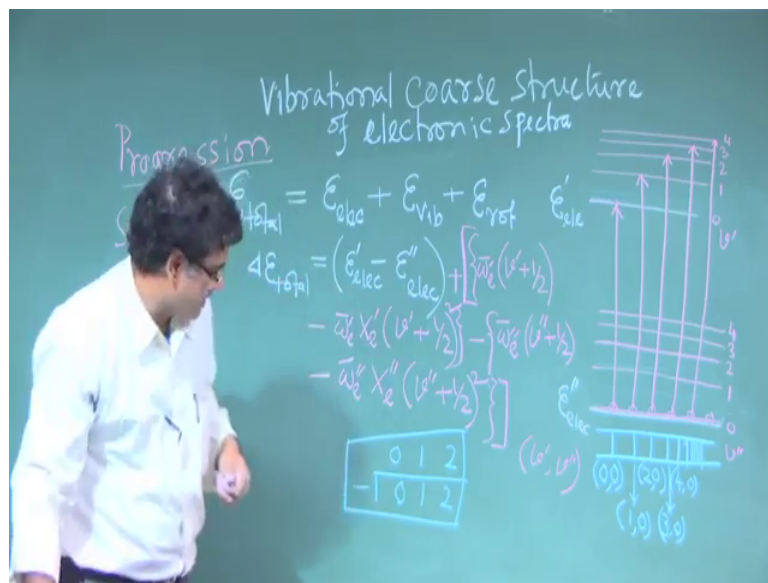 Vibrational Coarse Structure
of electronic spectra
Progression
S
ε total = ε elec + ε vib + ε rot
Δε total = (ε' elec − ε'' elec) + [{ω̄e'(v' + 1/2)
− ω̄e' Xe' (v' + 1/2)²} − {ω̄e''(v'' + 1/2)
− ω̄e'' Xe'' (v'' + 1/2)²}]
ε' ele
4
3
2
1
0
v'
4
3
2
1
0
v''
ε'' elec
0 1 2
− 1 0 1 2
(v', v'')
(0,0) (2,0) (4,0)
(1,0) (3,0)